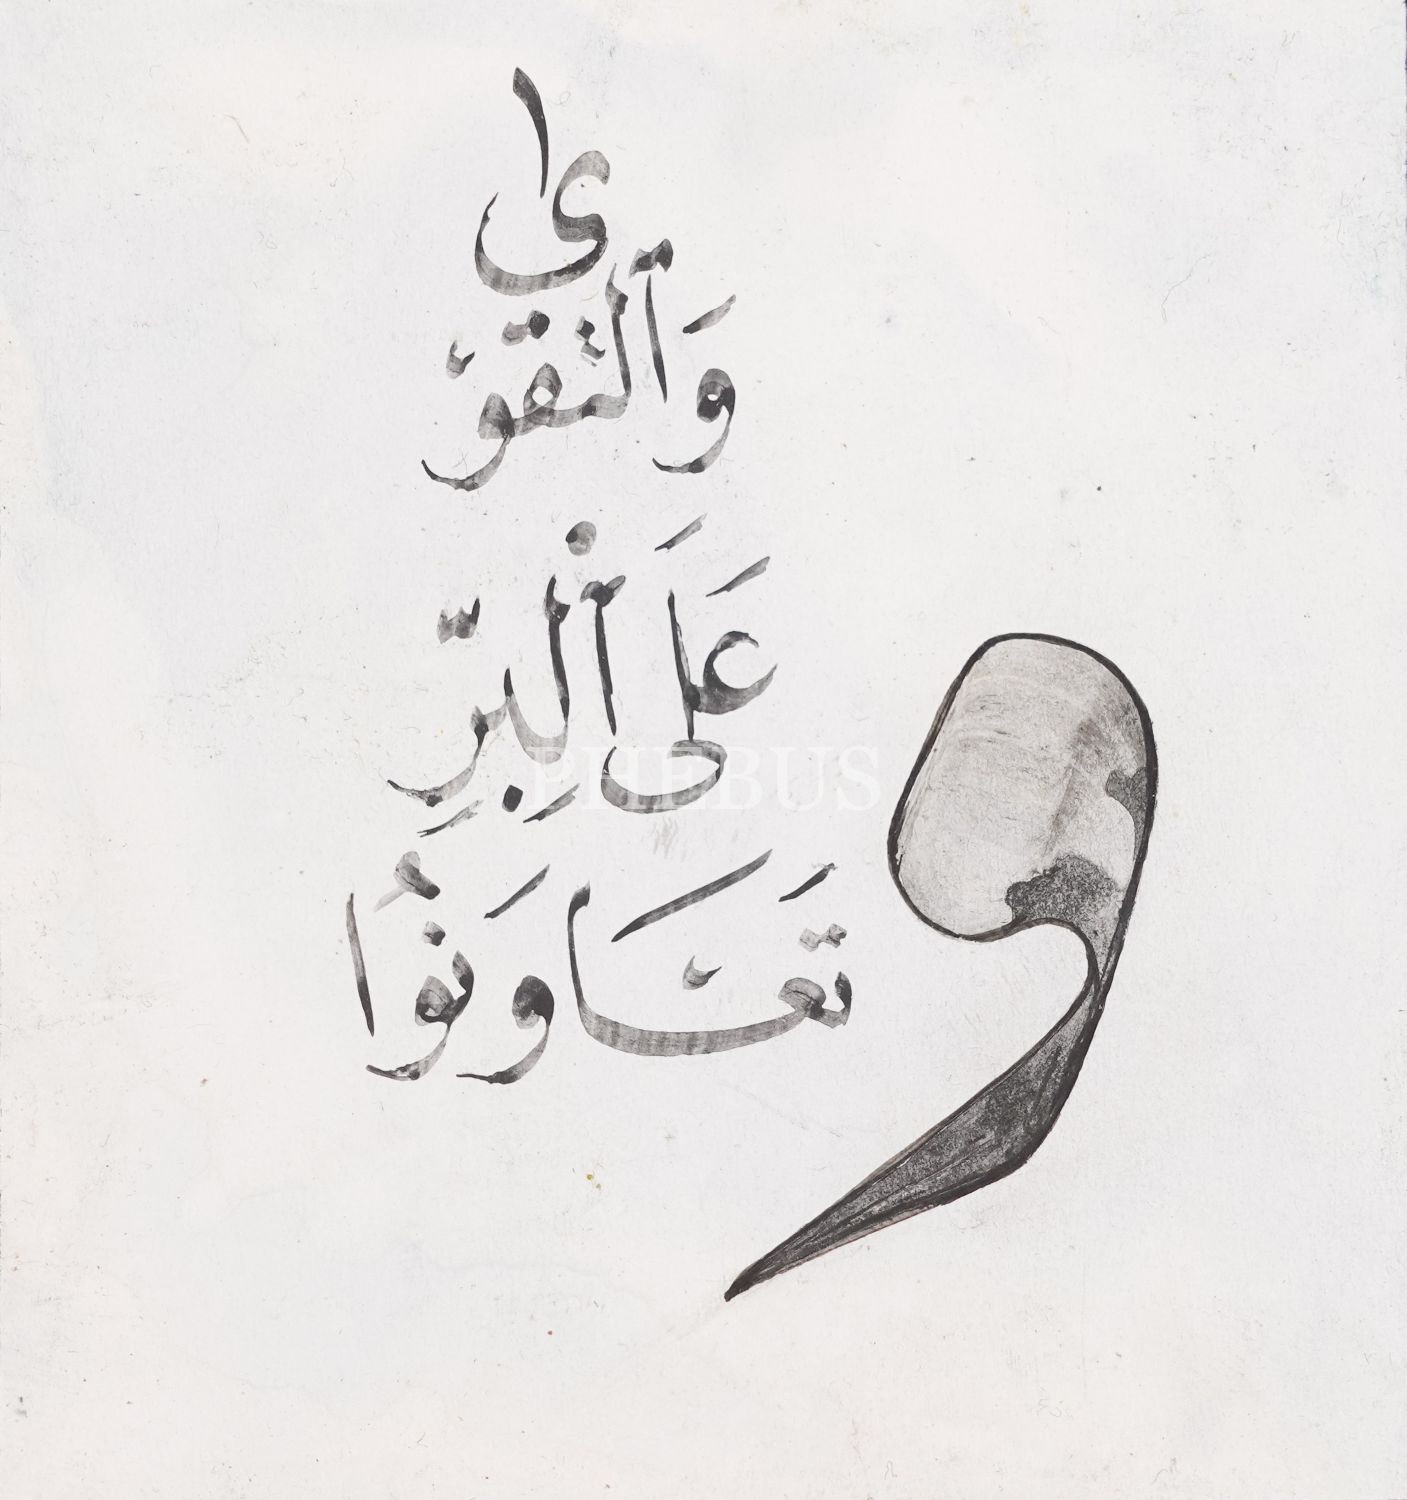 وَتَعَاوَنُوا
عَلَى ٱلْبِرِّ
وَٱلتَّقْوَىٰ
PHEBUS